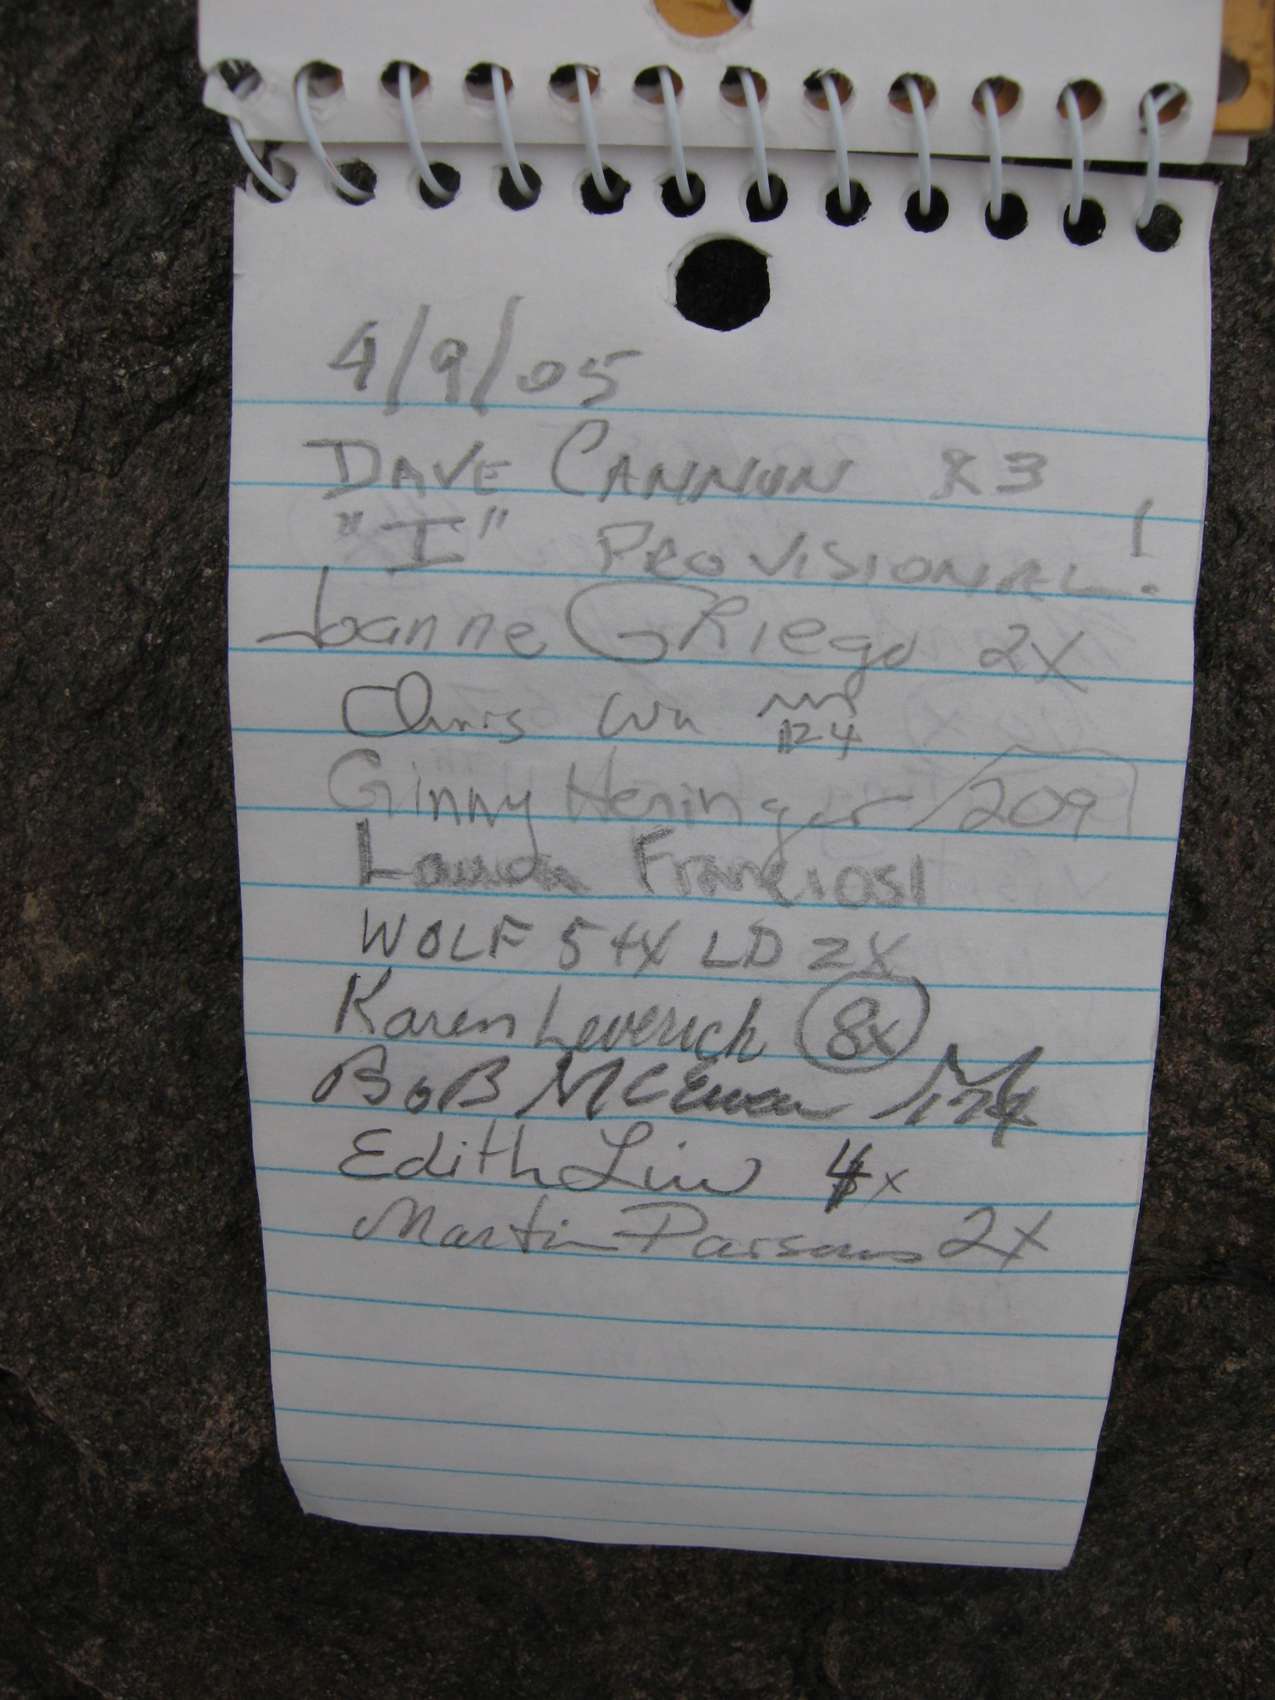 4/9/05
DAVE CANNON x3
"I" PROVISIONAL!
Joanne GRiego 2X
Chris Wu
124
Ginny Heninger 209
Laura Franciosi
WOLF 5+X LD 2X
Karen Leverich 8x
BOB MCEwan
Edith Liu 4x
Martin Parsons 2X